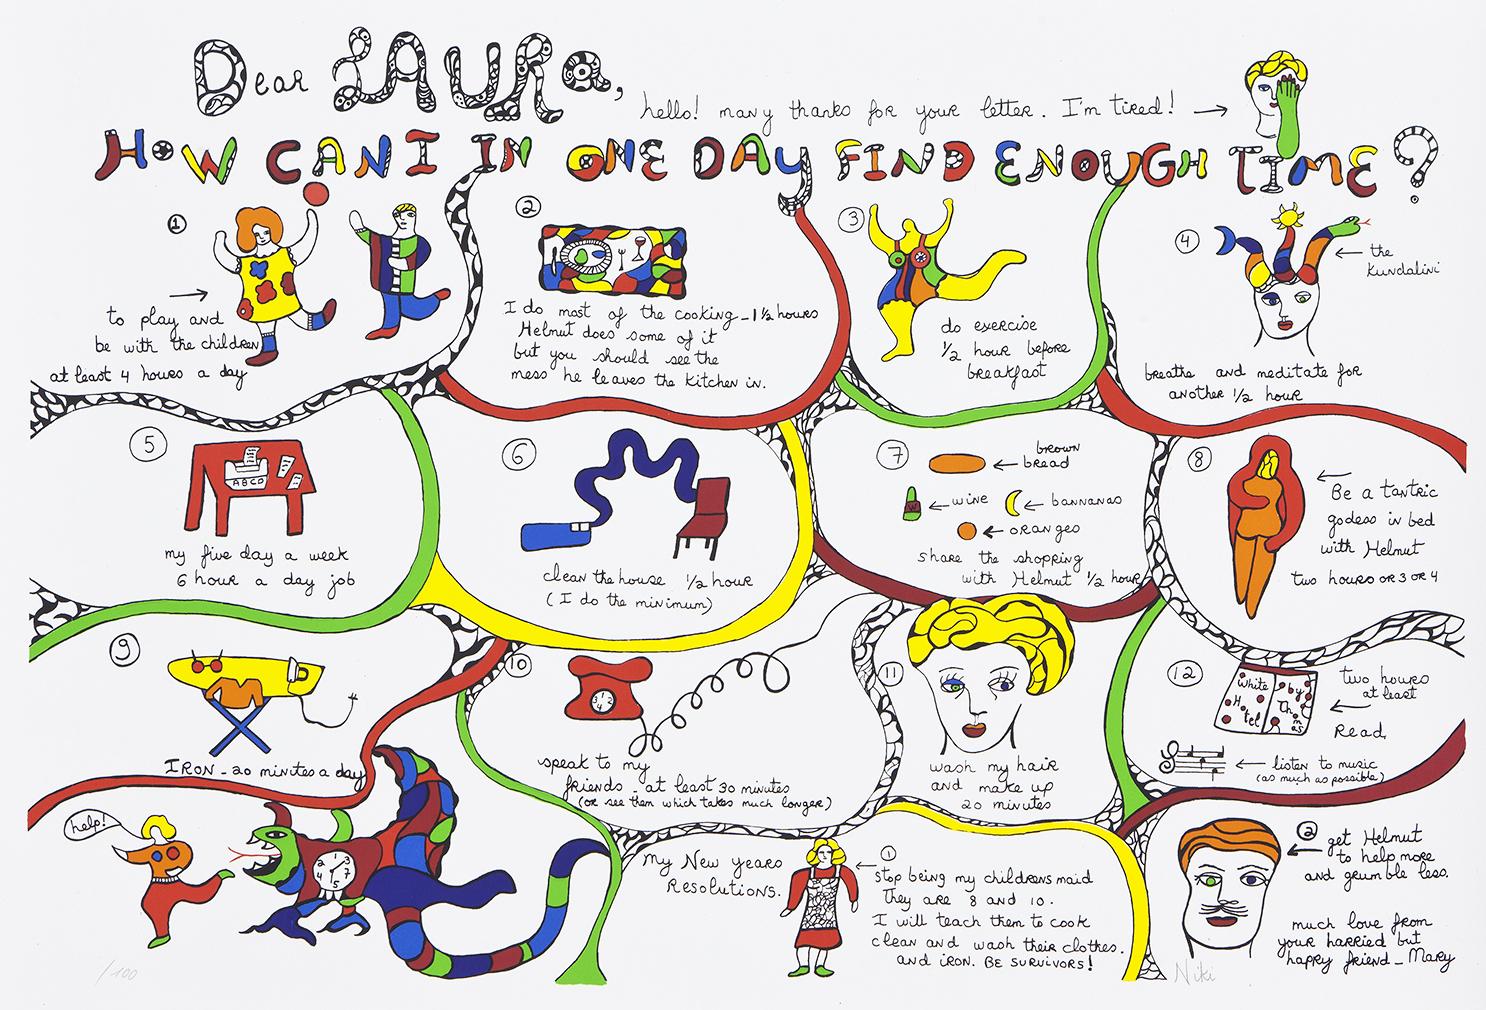 Dear LAURA,
hello! many thanks for your letter. I'm tired!
HOW CAN I IN ONE DAY FIND ENOUGH TIME?
1
to play and
be with the children
at least 4 hours a day
2
I do most of the cooking - 1 1/2 hours
Helmut does some of it
but you should see the
mess he leaves the kitchen in.
3
do exercise
1/2 hour before
breakfast
4
the
Kundalini
breathe and meditate for
another 1/2 hour
5
ABCD
my five day a week
6 hour a day job
6
clean the house 1/2 hour
(I do the minimum)
7
brown
bread
wine
bannanas
oranges
share the shopping
with Helmut 1/2 hour
8
Be a tantric
godess in bed
with Helmut
two hours or 3 or 4
9
IRON - 20 minutes a day
10
speak to my
friends - at least 30 minutes
(or see them which takes much longer)
11
wash my hair
and make up
20 minutes
12
White Hotel
by Thomas
two hours
at least
Read
listen to music
(as much as possible)
help!
My New Years
Resolutions.
1
stop being my childrens maid
They are 8 and 10.
I will teach them to cook
clean and wash their clothes.
and iron. BE SURVIVORS!
2
get Helmut
to help more
and grumble less.
much love from
your harried but
happy friend - Mary
/100
Niki